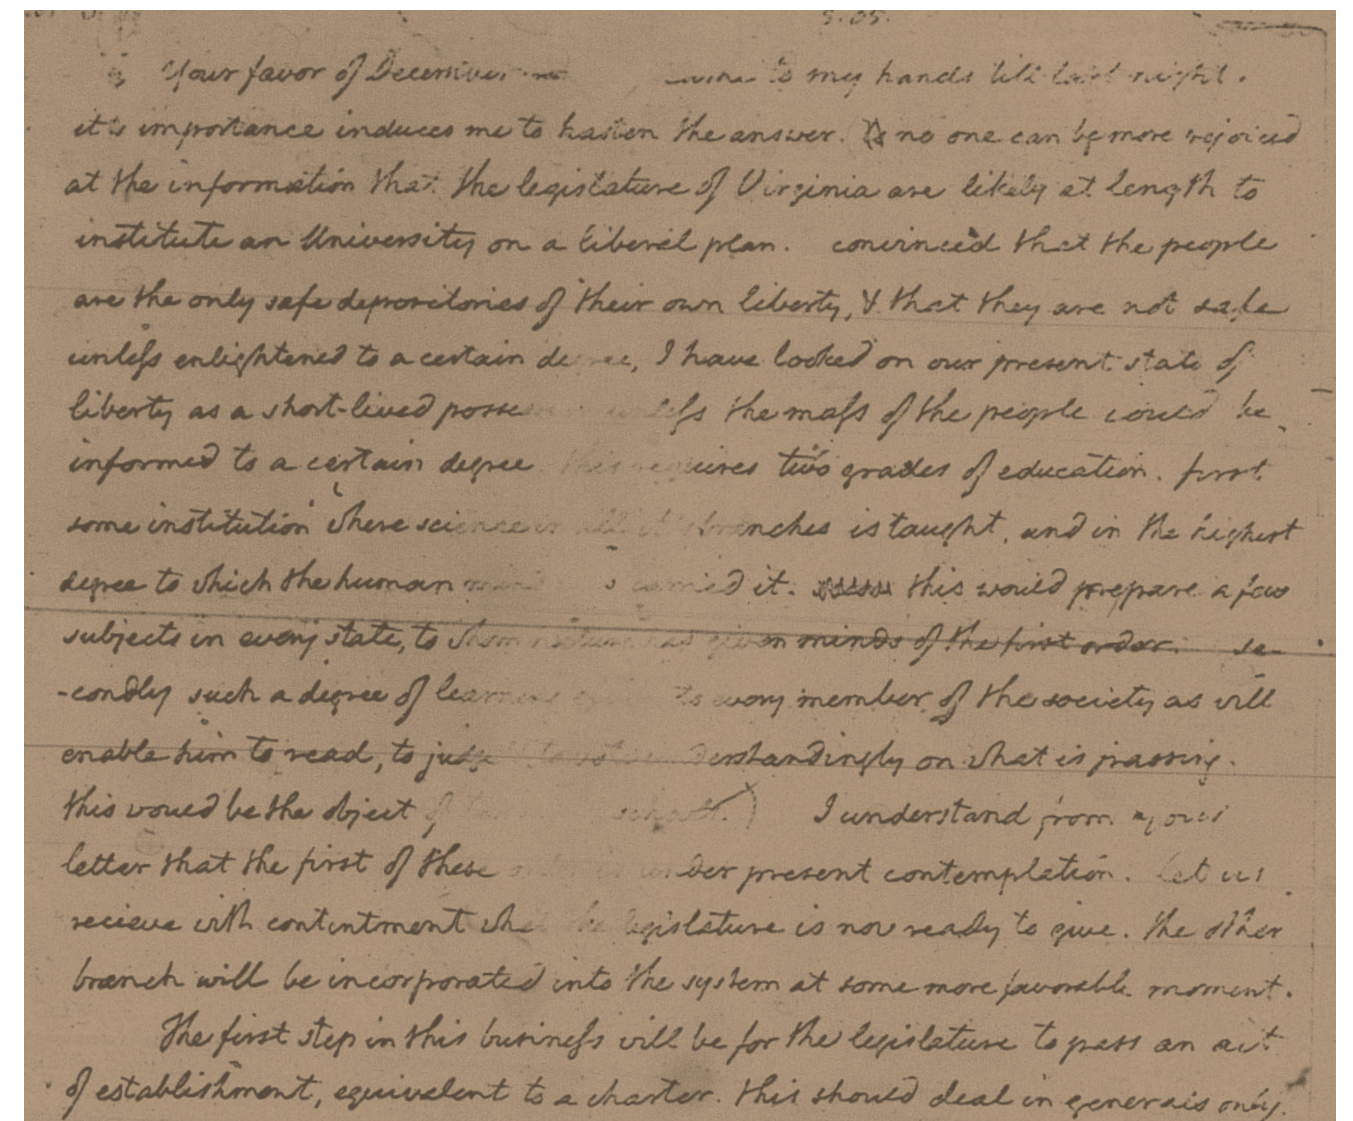 Your favor of December to my hands till last night.
it's importance induces me to hasten the answer. no one can be more rejoiced
at the information that the legislature of Virginia are likely at length to
institute an University on a liberal plan. convinced that the people
are the only safe depositories of their own liberty, & that they are not safe
unless enlightened to a certain degree, I have looked on our present state of
liberty as a short-lived unless the mass of the people could be
informed to a certain degree this requires two grades of education. first
some institution where science in all it's branches is taught, and in the highest
degree to which the human mind carried it. this would prepare a few
subjects in every state, to whom nature has given minds of the first order. se-
-condly such a degree of learning to every member of the society as will
enable him to read, to judge & to vote understandingly on what is passing.
this would be the object of schools. I understand from your
letter that the first of these under present contemplation. let us
recieve with contentment what the legislature is now ready to give. the other
branch will be incorporated into the system at some more favorable moment.
The first step in this business will be for the legislature to pass an act
of establishment, equivalent to a charter. this should deal in generals only.